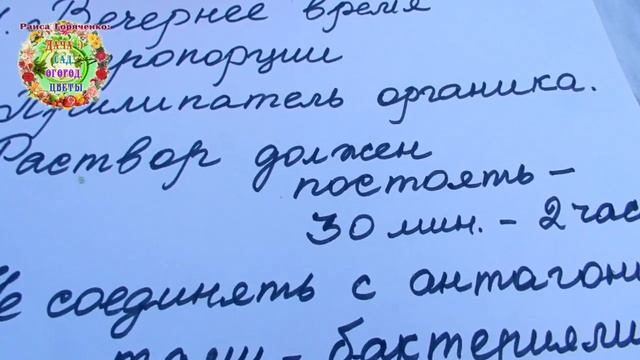 Раиса Горяченко:
ДАЧА
САД
ОГОРОД
ЦВЕТЫ
Вечернее время
ропорции
Прилипатель органика.
Раствор должен
постоять -
30 мин. - 2 час
Не соединять с антагони
тами - бактериями